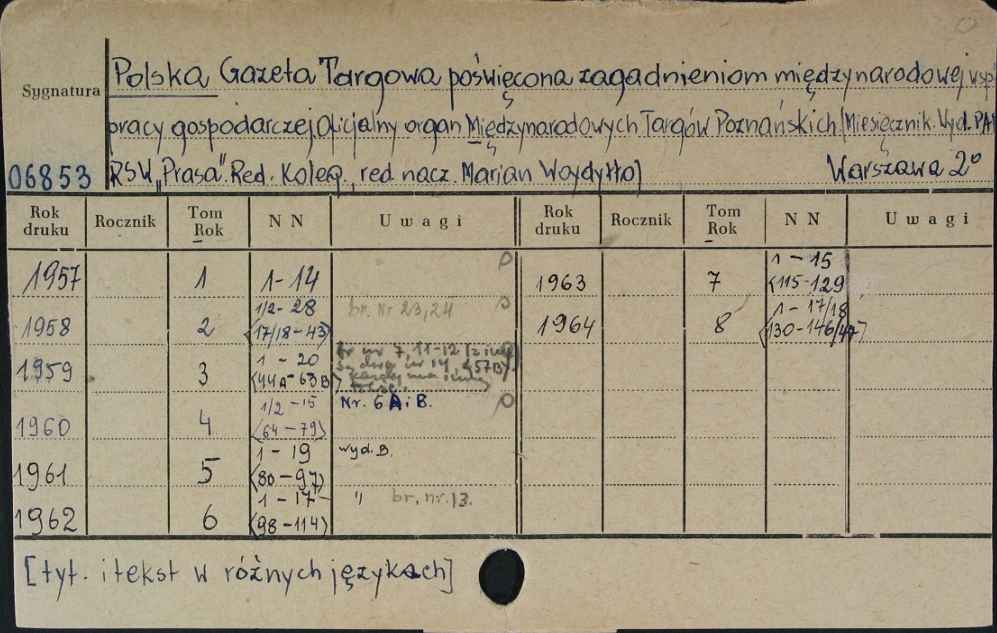 Sygnatura
Polska Gazeta Targowa poświęcona zagadnieniom międzynarodowej wsp
pracy gospodarczej. Oficjalny organ Międzynarodowych Targów Poznańskich [Miesięcznik. Wyd. PAP
06853 RSW „Prasa". Red. Koleg., red nacz. Marian Wojdyłło] Warszawa 2°
Rok druku Rocznik Tom Rok N N Uwagi Rok druku Rocznik Tom Rok N N Uwagi
1957 1 1-14 1963 7 1-15 <115-129
1958 2 1/2-28 <17/18-43> br. Nr 23,24 1964 8 1-17/18 <130-146/47>
1959 3 1-20 <44A-63B> br nr 7, 11-12 są dwa nr 14 <57B>
1960 4 1/2-15 <64-79> Nr. 6 A i B.
1961 5 1-19 <80-97> wyd. B.
1962 6 1-17 <98-114> " br. nr. 13.
[tyt. i tekst w różnych językach]